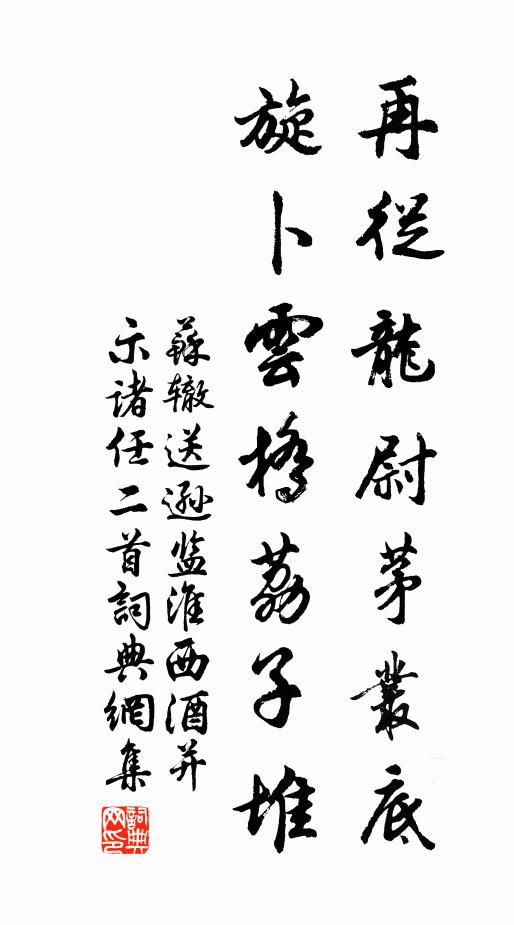 再從龍尉茅叢底
旋卜雲橋荔子堆
蘇辙送遜监淮西酒并
示諸任二首詞典網集
詞典网印